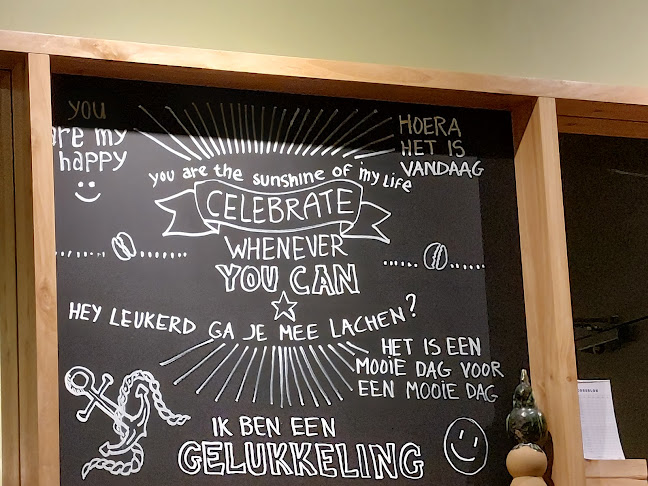 you
are my
happy
HOERA
HET IS
VANDAAG
you are the sunshine of my life
CELEBRATE
WHENEVER
YOU CAN
HEY LEUKERD GA JE MEE LACHEN?
HET IS EEN
MOOIE DAG VOOR
EEN MOOIE DAG
IK BEN EEN
GELUKKELING